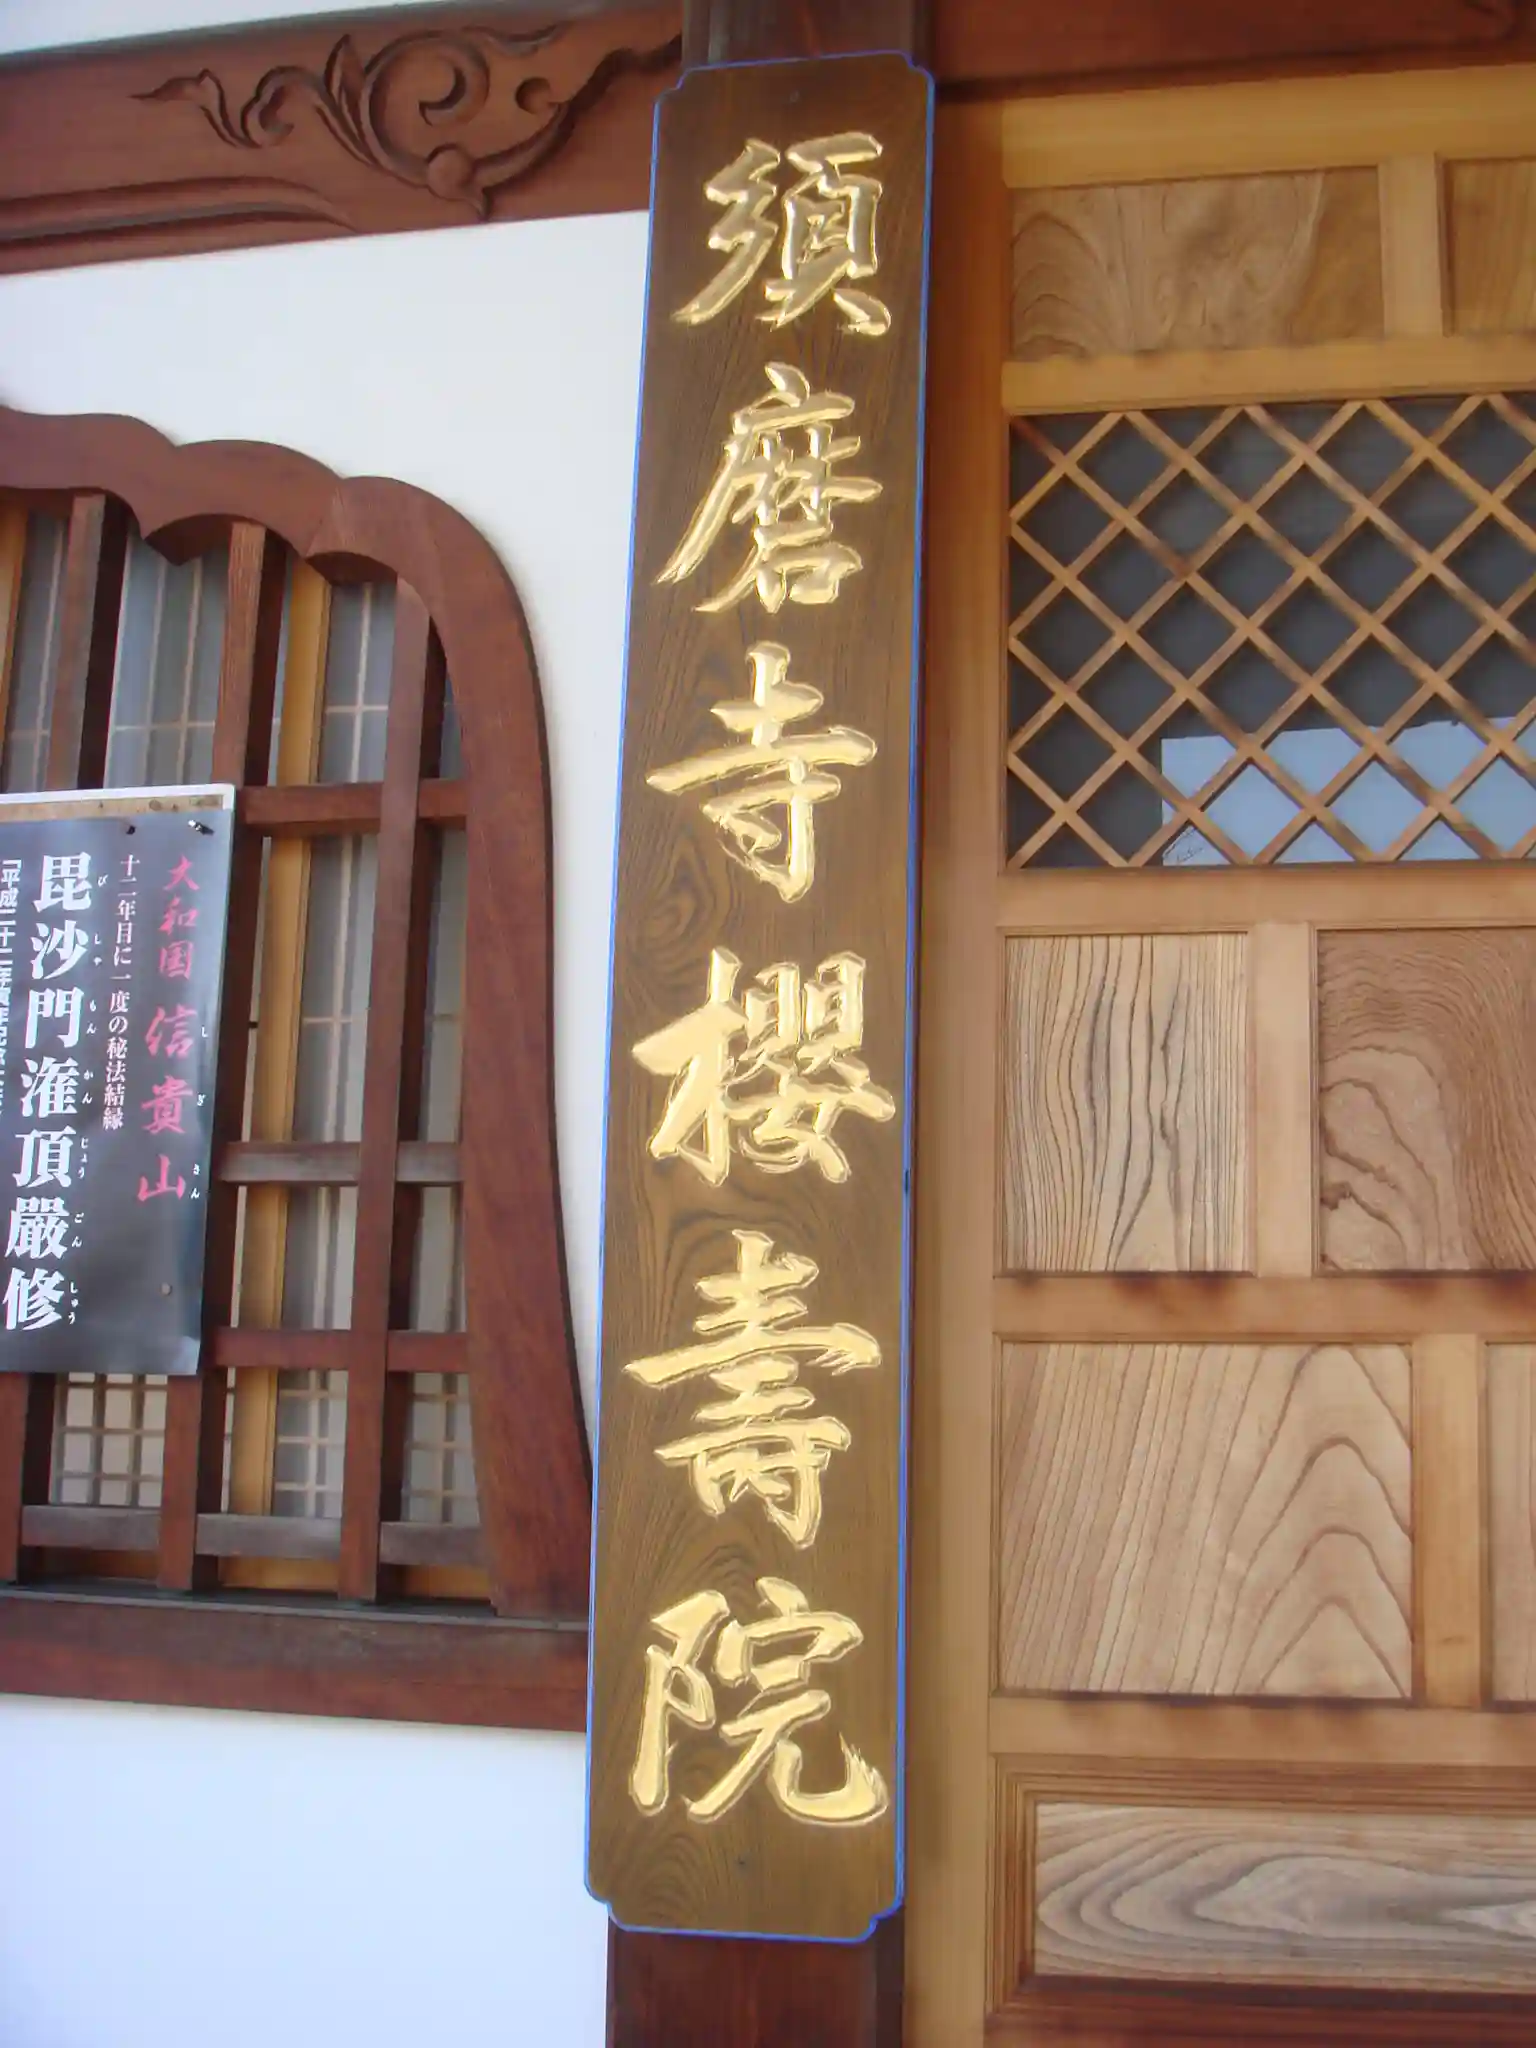 須磨寺櫻壽院
大和国信貴山
十二年目に一度の秘法結縁
毘沙門潅頂嚴修
「平成二十二年寅年記念